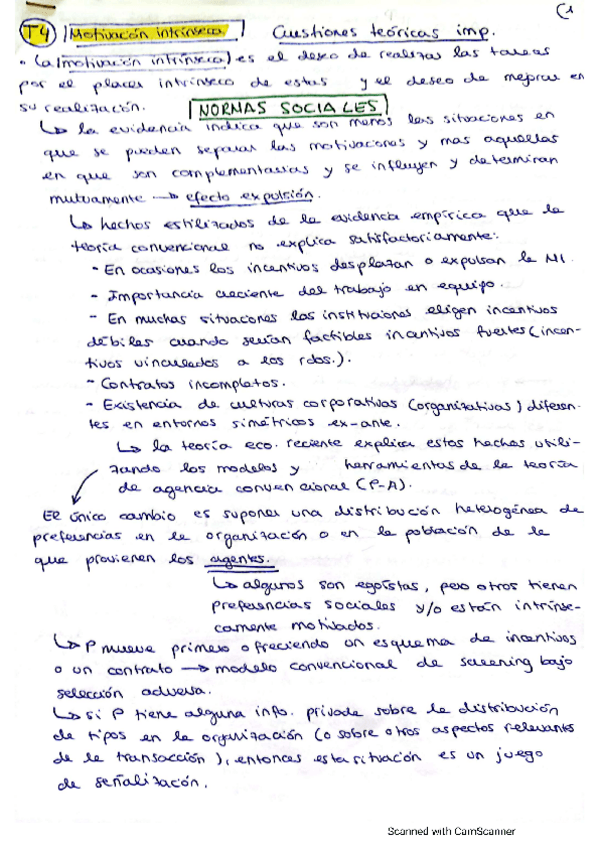 T4 Motivación intrínseca Cuestiones teóricas imp. 1
• La (motivación intrínseca) es el deseo de realizar las tareas
por el placer intrínseco de estas y el deseo de mejorar en
su realización. NORMAS SOCIALES
↳ la evidencia indica que son menos las situaciones en
que se pueden separar las motivaciones y mas aquellas
en que son complementarias y se influyen y determinan
mutuamente → efecto expulsión.
↳ hechos estilizados de la evidencia empírica que la
teoría convencional no explica satisfactoriamente:
- En ocasiones los incentivos desplazan o expulsan la MI.
- Importancia creciente del trabajo en equipo.
- En muchas situaciones las instituciones eligen incentivos
débiles cuando serían factibles incentivos fuertes (incen-
tivos vinculados a los rdos.).
- Contratos incompletos.
- Existencia de culturas corporativas (organizativas) diferen-
tes en entornos simétricos ex-ante.
↳ la teoría eco. reciente explica estos hechos utili-
zando los modelos y herramientas de la teoría
de agencia convencional (P-A).
El único cambio es suponer una distribución heterogénea de
preferencias en la organización o en la población de la
que provienen los agentes.
↳ algunos son egoístas, pero otros tienen
preferencias sociales y/o están intrínse-
camente motivados.
↳ P mueve primero ofreciendo un esquema de incentivos
o un contrato → modelo convencional de screening bajo
selección adversa.
↳ si P tiene alguna info. privada sobre la distribución
de tipos en la organización (o sobre otros aspectos relevantes
de la transacción), entonces esta situación es un juego
de señalización.
Scanned with CamScanner